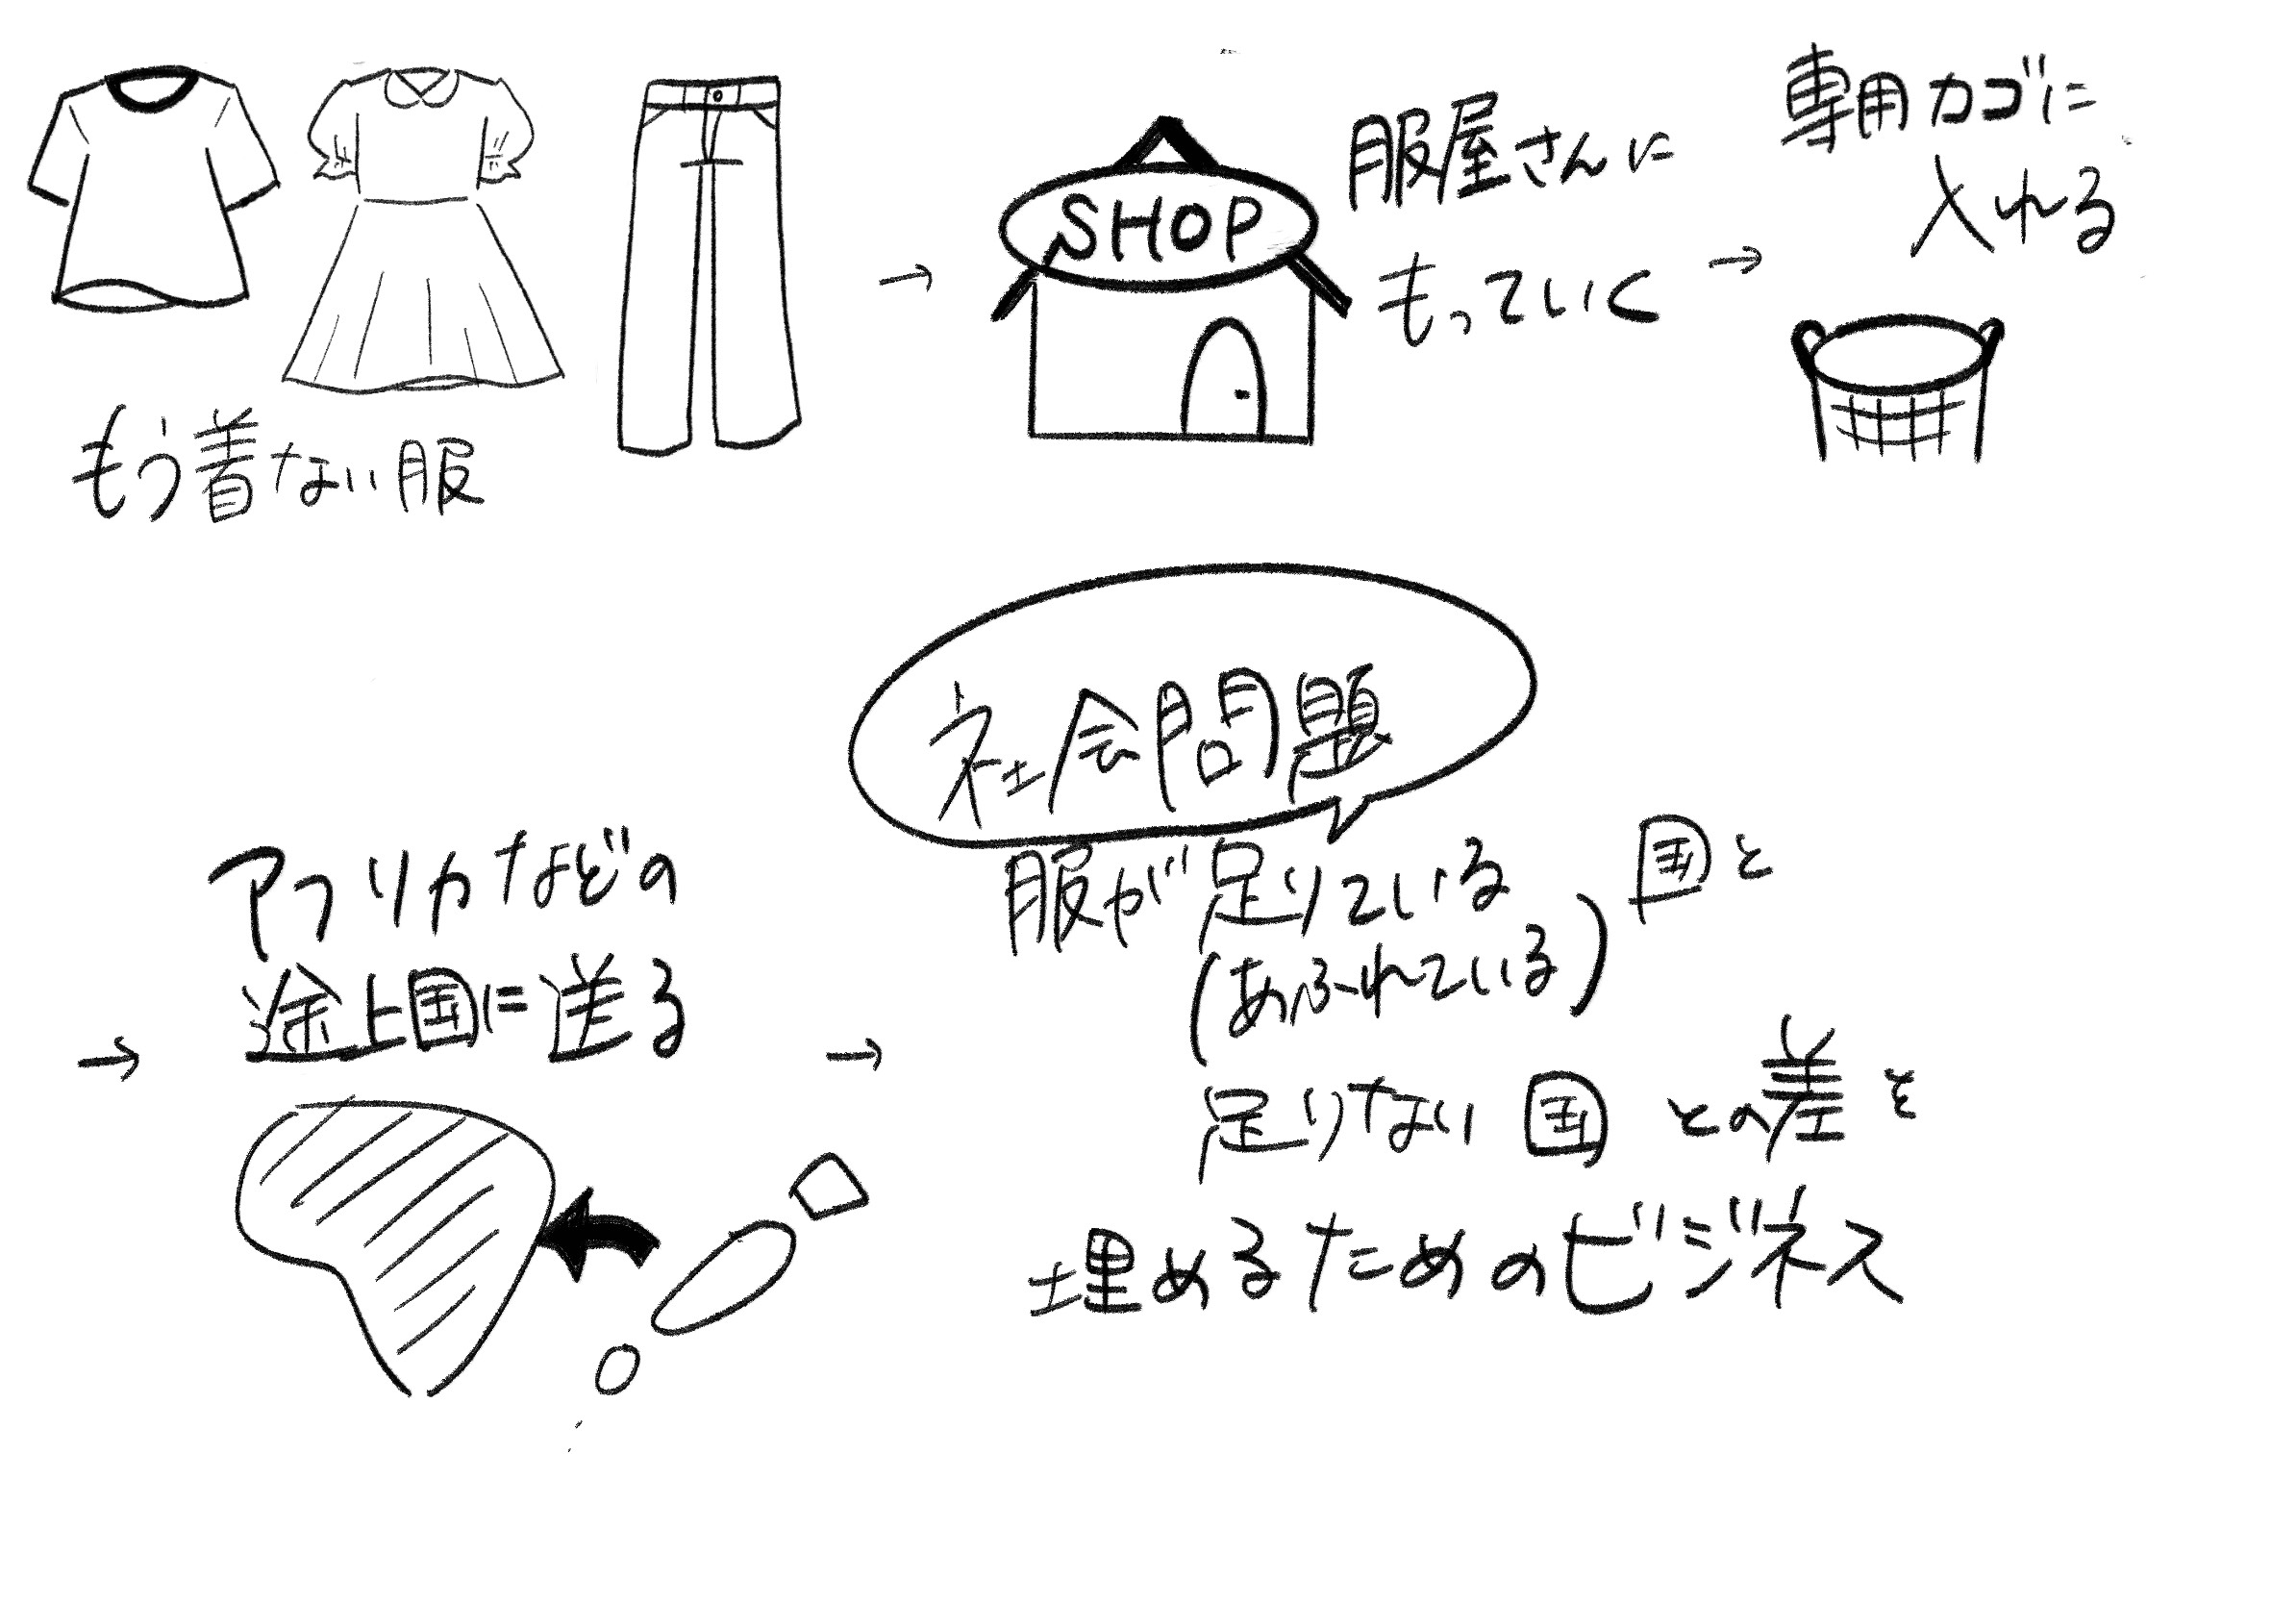 もう着ない服
→
SHOP
服屋さんに
もっていく
→
専用カゴに
入れる
→
アフリカなどの
途上国に送る
→
社会問題
服が足りている国と
(あふれている)
足りない国との差を
埋めるためのビジネス